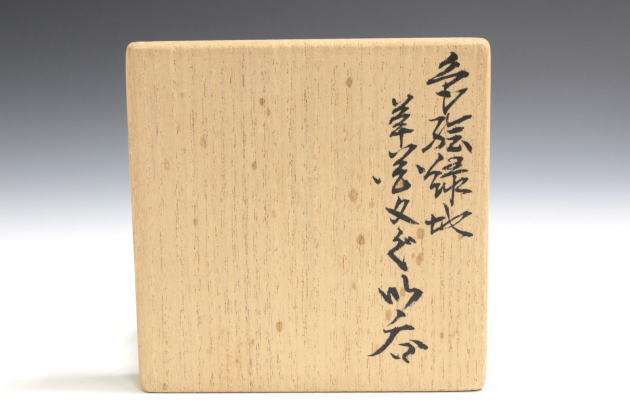 色絵緑地
草花文ぐい呑